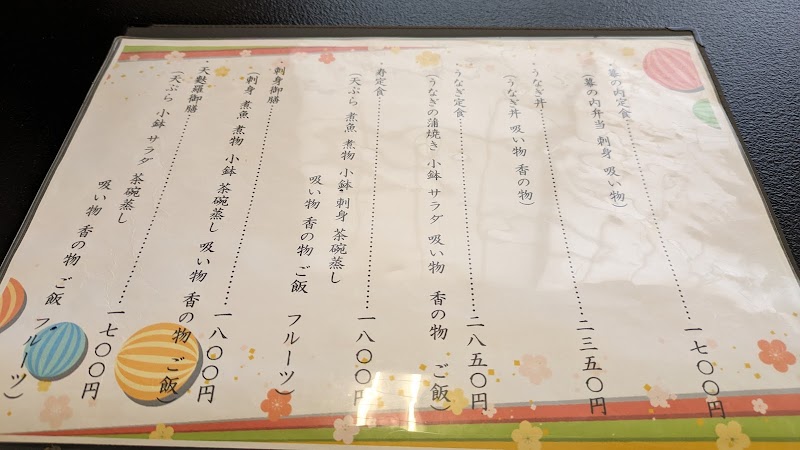 ・幕の内定食………一七〇〇円
(幕の内弁当 刺身 吸い物)
・うなぎ丼………二三五〇円
(うなぎ丼 吸い物 香の物)
・うなぎ定食………二八五〇円
(うなぎの蒲焼き 小鉢 サラダ 吸い物 香の物 ご飯)
・寿定食………一八〇〇円
(天ぷら 煮魚 煮物 小鉢 刺身 茶碗蒸し
吸い物 香の物 ご飯 フルーツ)
・刺身御膳………一八〇〇円
(刺身 煮魚 煮物 小鉢 茶碗蒸し 吸い物 香の物 ご飯)
・天麩羅御膳………一七〇〇円
(天ぷら 小鉢 サラダ 茶碗蒸し
吸い物 香の物 ご飯 フルーツ)